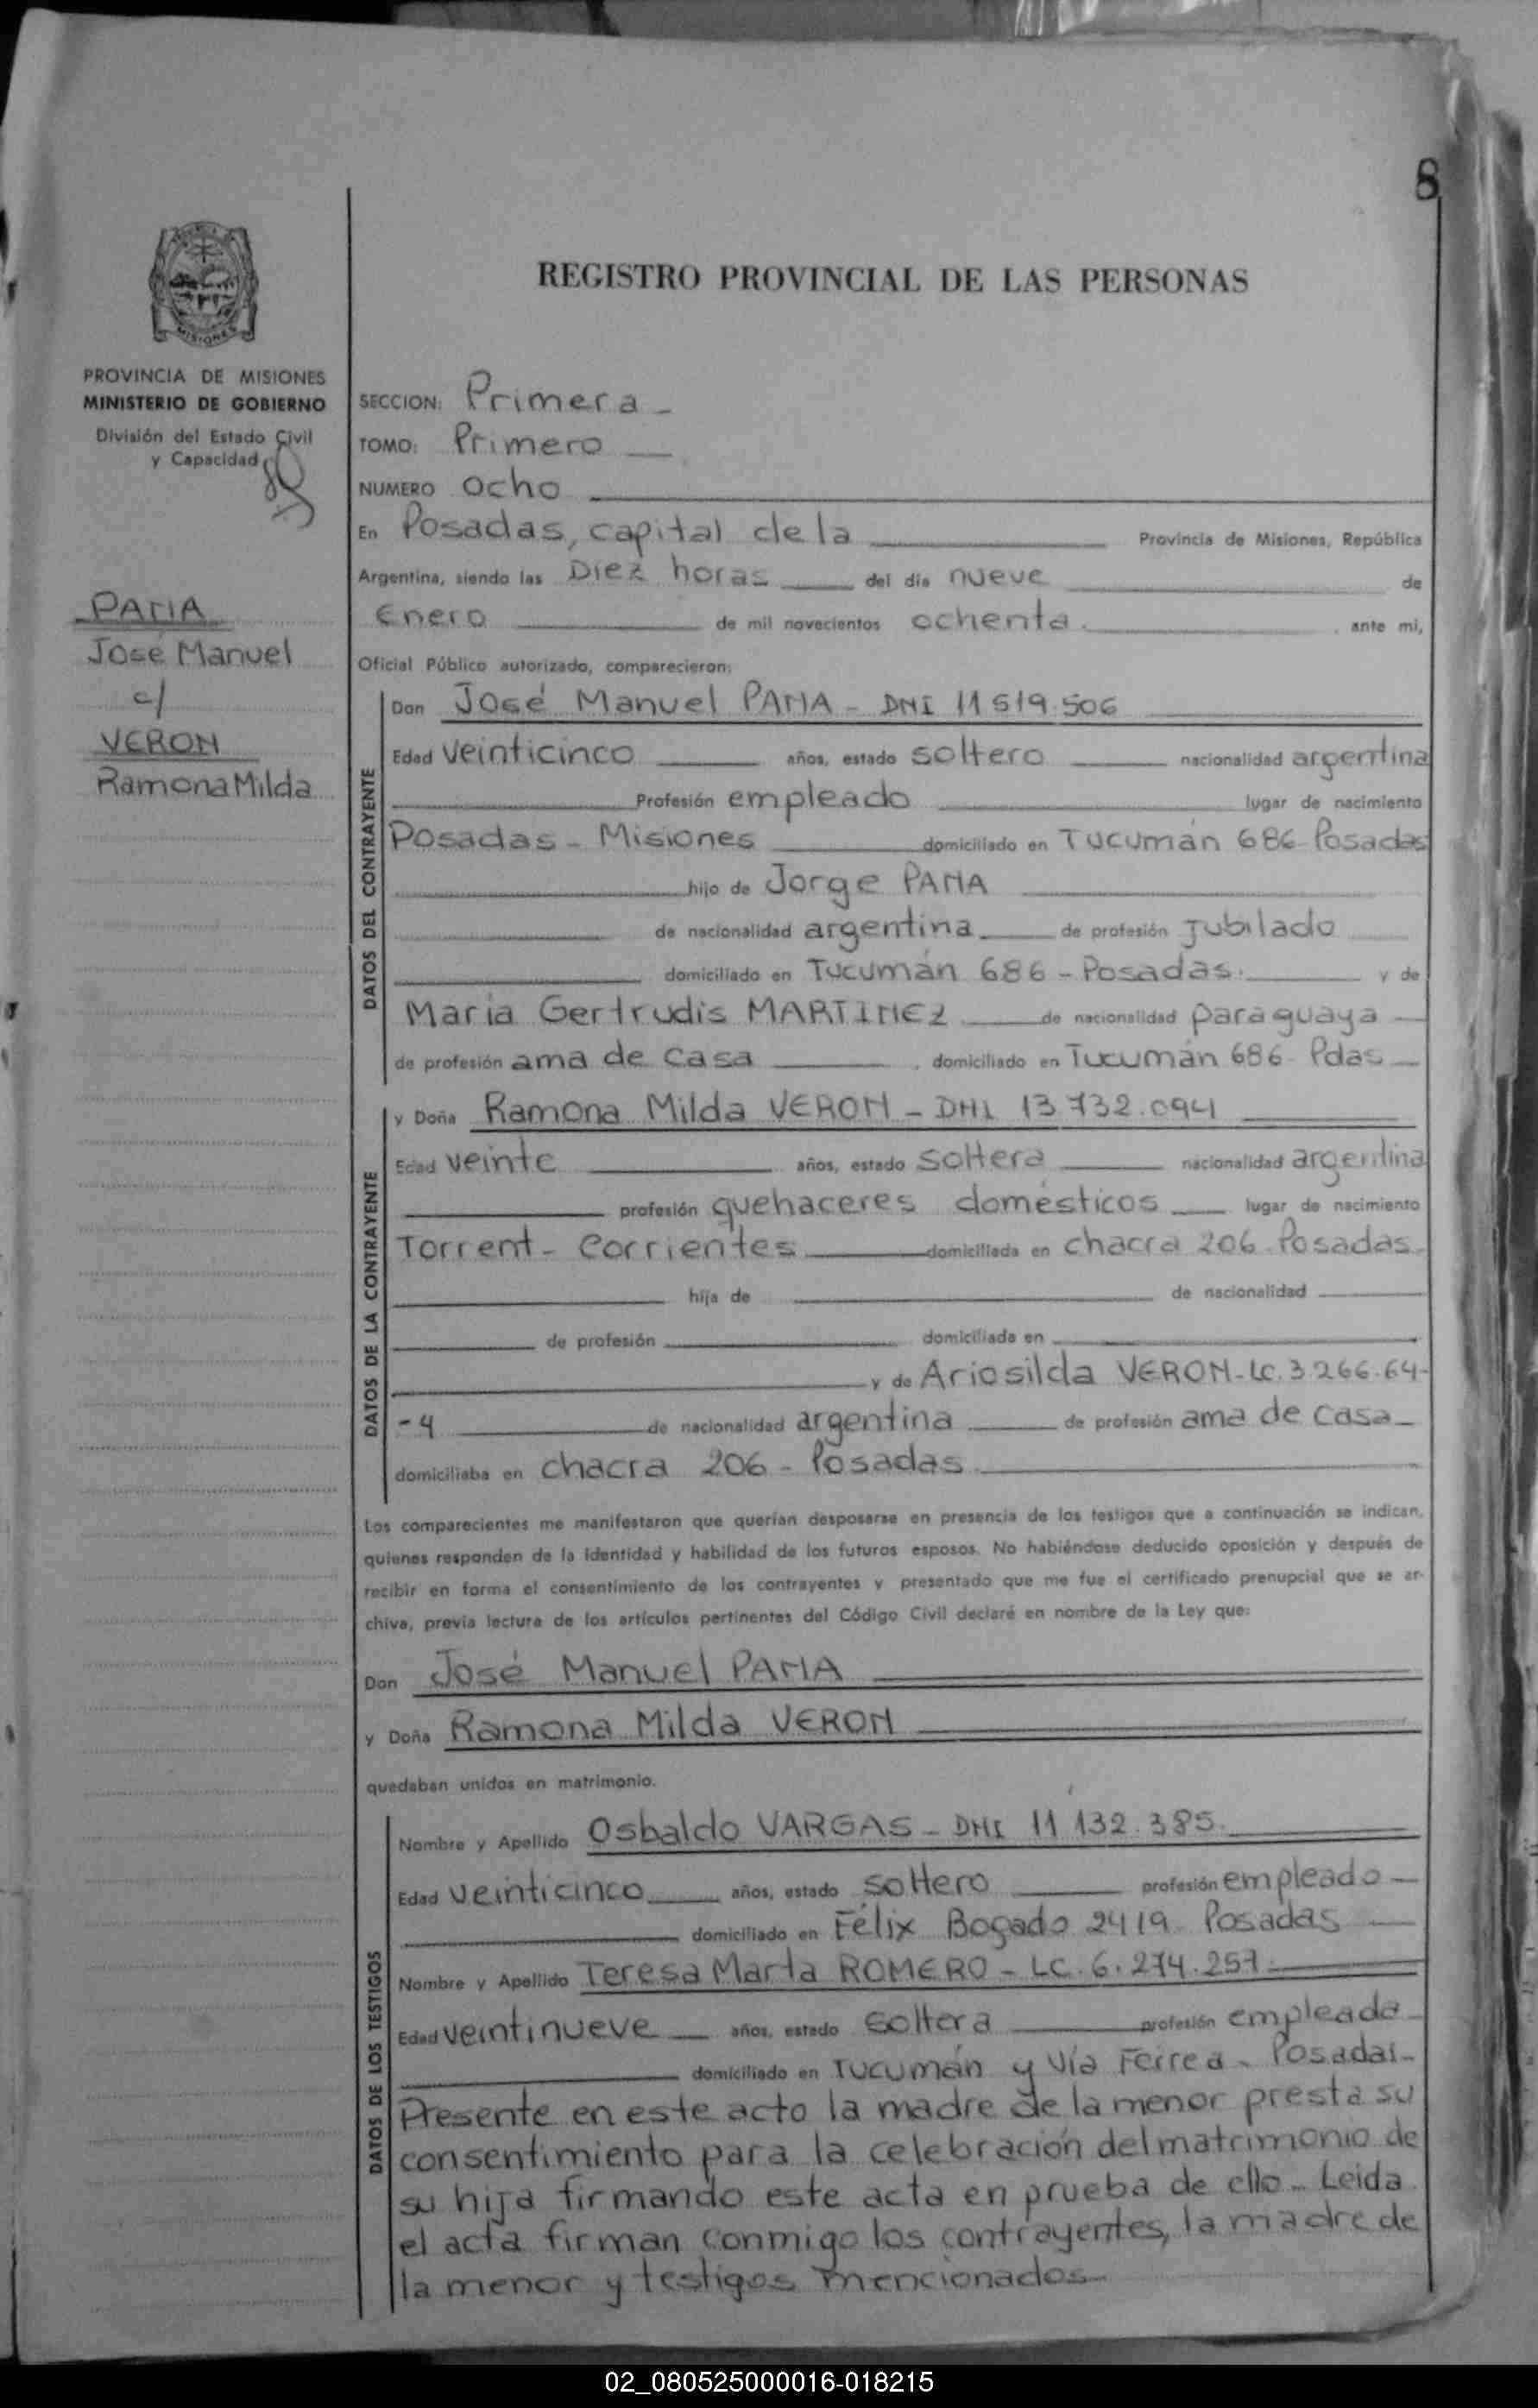 8
REGISTRO PROVINCIAL DE LAS PERSONAS
MISIONES
PROVINCIA DE MISIONES
MINISTERIO DE GOBIERNO
División del Estado Civil
y Capacidad
PANA
José Manuel
c/
VERON
Ramona Milda
SECCION: Primera -
TOMO: Primero
NUMERO Ocho
En Posadas, capital de la Provincia de Misiones, República
Argentina, siendo las Diez horas del día nueve de
Enero de mil novecientos ochenta. , ante mi,
Oficial Público autorizado, comparecieron:
DATOS DEL CONTRAYENTE
Don José Manuel PANA - DNI 11 519.506
Edad veinticinco años, estado soltero nacionalidad argentina
Profesión empleado lugar de nacimiento
Posadas - Misiones domiciliado en Tucumán 686 - Posadas
hijo de Jorge PANA
de nacionalidad argentina de profesión jubilado
domiciliado en Tucumán 686 - Posadas. y de
María Gertrudis MARTINEZ de nacionalidad paraguaya
de profesión ama de casa , domiciliado en Tucumán 686 - Pdas
DATOS DE LA CONTRAYENTE
y Doña Ramona Milda VERON - DNI 13.732.094
Edad veinte años, estado soltera nacionalidad argentina
profesión quehaceres domésticos lugar de nacimiento
Torrent - Corrientes domiciliada en chacra 206. Posadas.
hija de de nacionalidad
de profesión domiciliada en
y de Ariosilda VERON - LC. 3.266.64-
-4 de nacionalidad argentina de profesión ama de casa
domiciliaba en chacra 206 - Posadas
Los comparecientes me manifestaron que querían desposarse en presencia de los testigos que a continuación se indican,
quienes responden de la identidad y habilidad de los futuros esposos. No habiéndose deducido oposición y después de
recibir en forma el consentimiento de los contrayentes y presentado que me fue el certificado prenupcial que se ar-
chiva, previa lectura de los artículos pertinentes del Código Civil declaré en nombre de la Ley que:
Don José Manuel PANA
y Doña Ramona Milda VERON
quedaban unidos en matrimonio.
DATOS DE LOS TESTIGOS
Nombre y Apellido Osbaldo VARGAS - DNI 11 132.385.
Edad veinticinco años, estado soltero profesión empleado
domiciliado en Félix Bogado 2419 - Posadas
Nombre y Apellido Teresa Marta ROMERO - LC. 6.274.257.
Edad veintinueve años, estado soltera profesión empleada
domiciliado en Tucumán y Vía Ferrea - Posadas -
Presente en este acto la madre de la menor presta su
consentimiento para la celebración del matrimonio de
su hija firmando este acta en prueba de ello - Leida
el acta firman conmigo los contrayentes, la madre de
la menor y testigos mencionados -
02_080525000016-018215